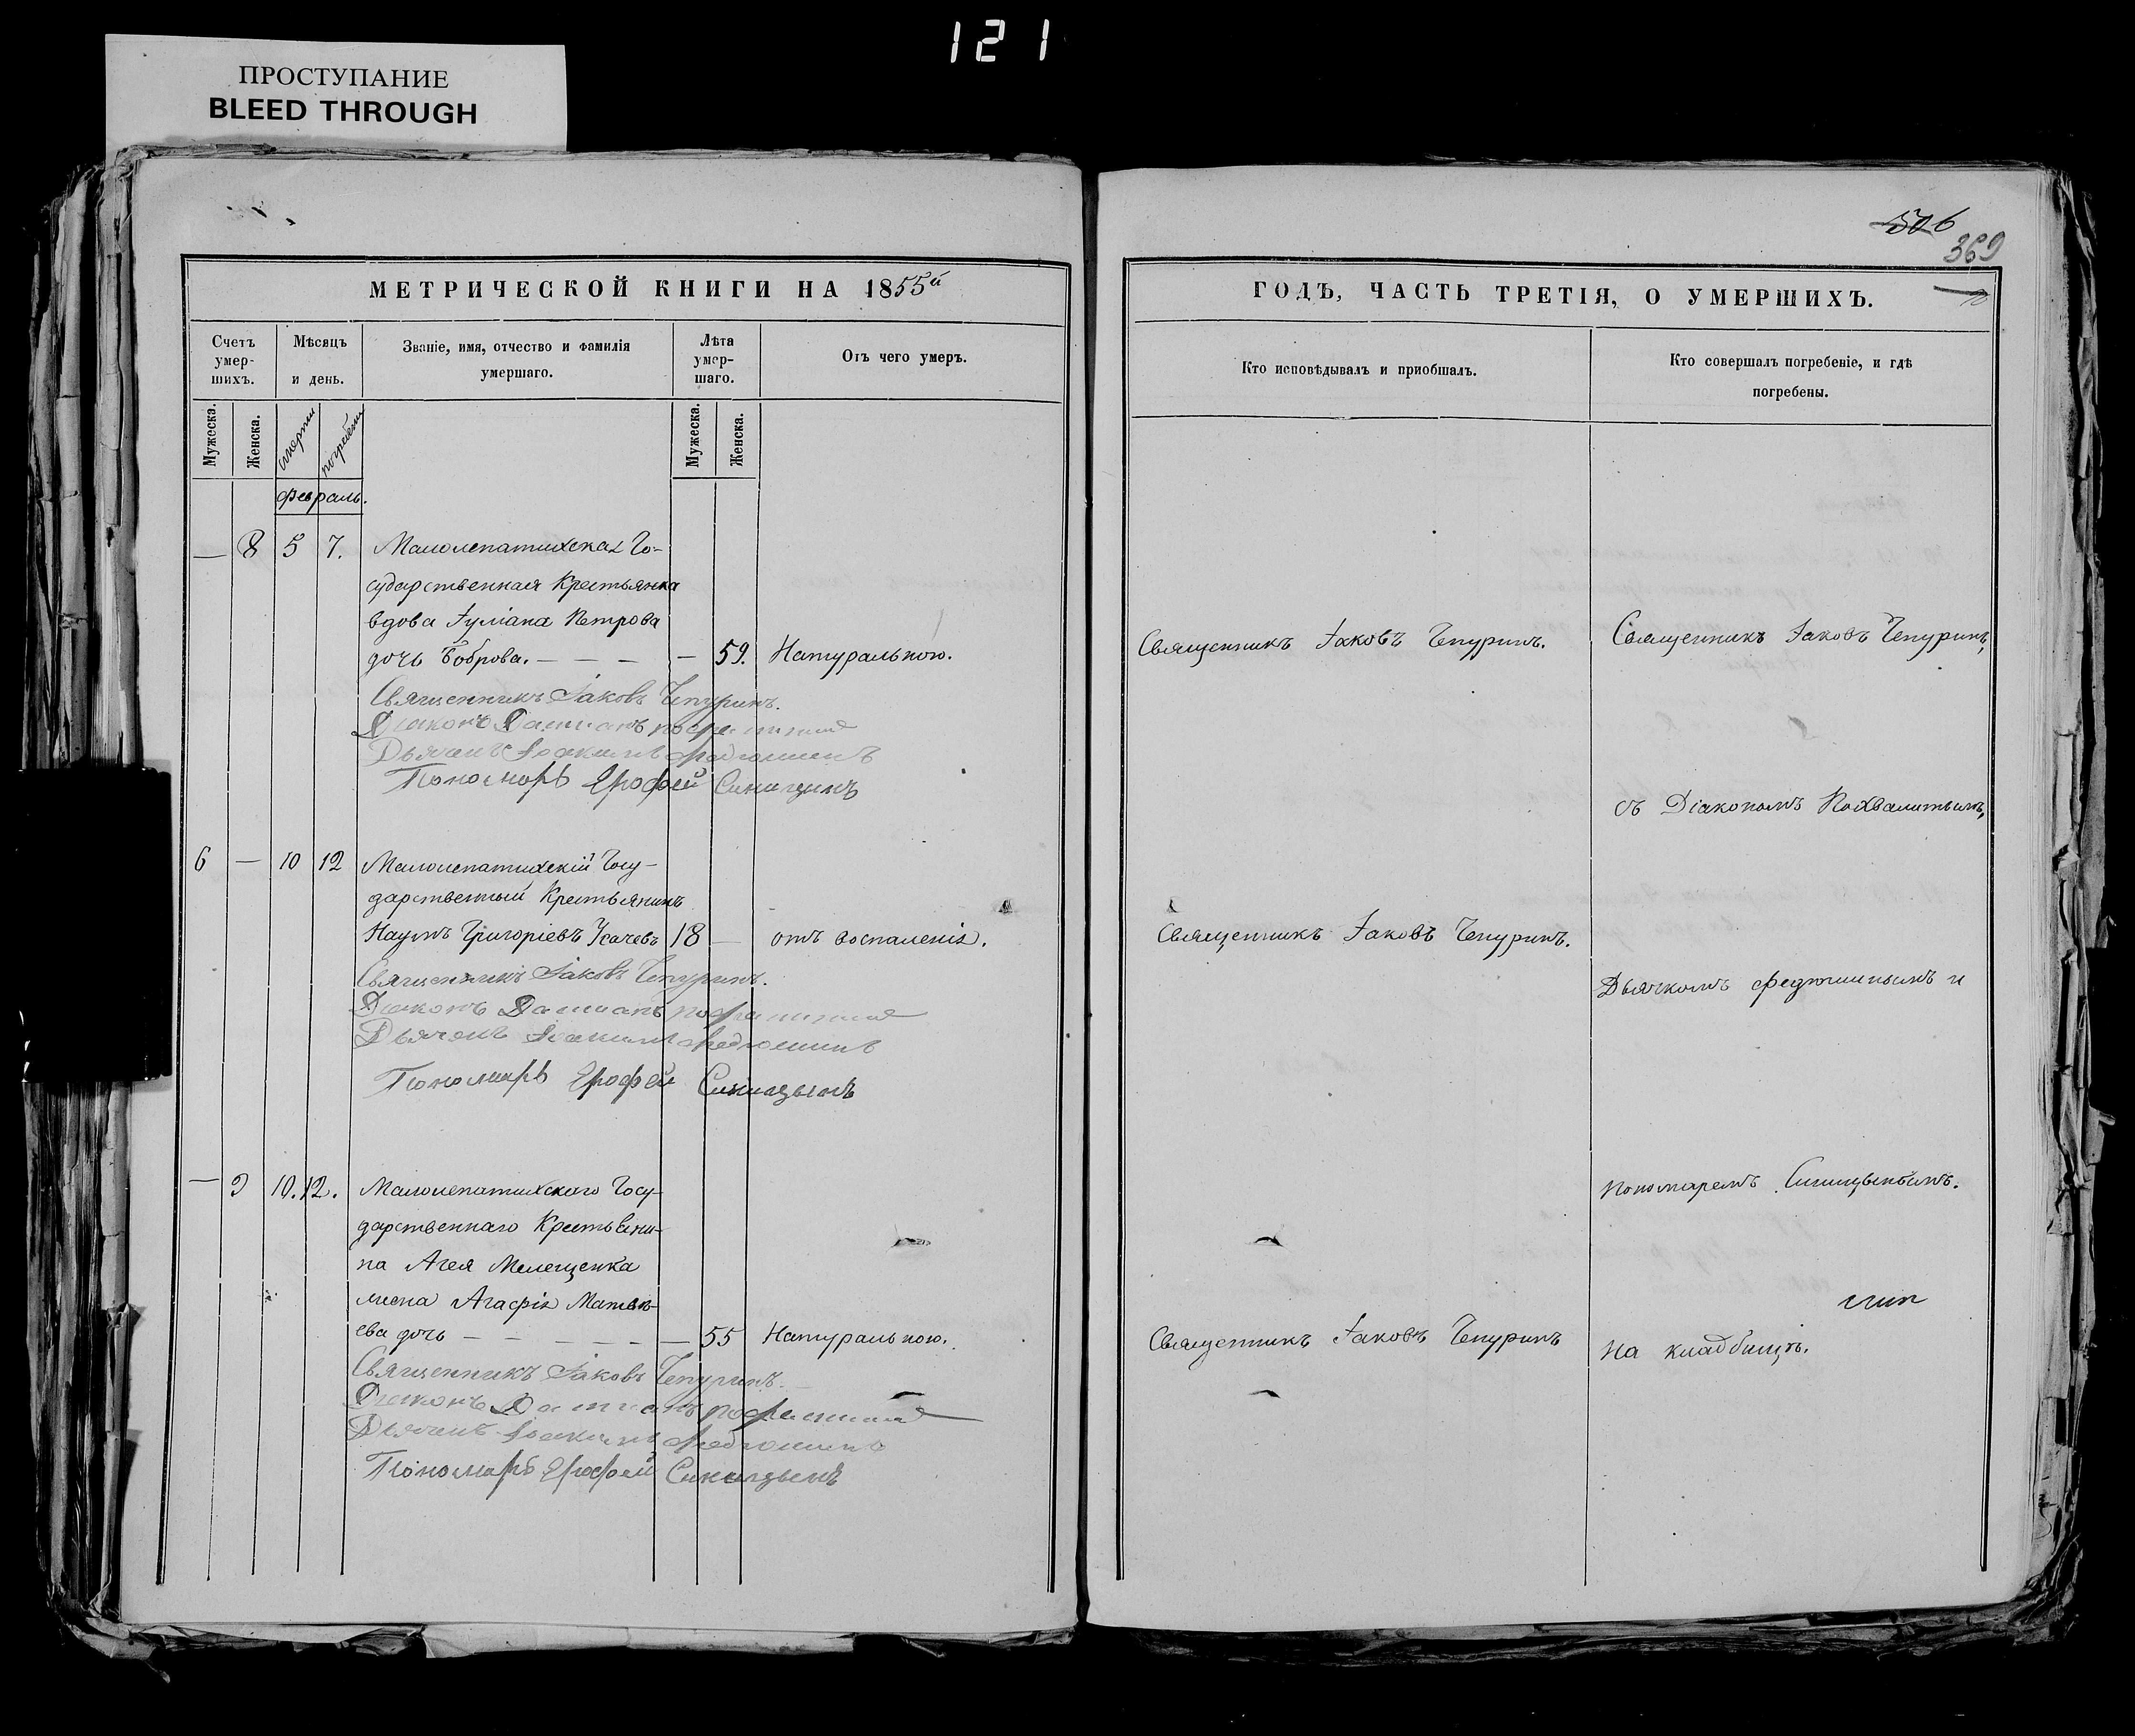 121
ПРОСТУПАНИЕ
BLEED THROUGH
МЕТРИЧЕСКОЙ КНИГИ НА 1855й
Счетъ умер-шихъ.
Мѣсяцъ и день.
Званіе, имя, отчество и фамилія умершаго.
Лѣта умер-шаго.
Отъ чего умеръ.
Мужеска.
Женска.
смерти
погребенія
Мужеска.
Женска.
Февраль.
— 8 5 7. Малолепатихская Го-
сударственная Крестьянка
вдова Іуліана Петрова
дочь Боброва. — — — — 59. Натуральною.
Священникъ Іаковъ Чепуринъ.
Діаконъ Даміанъ
Дьячекъ Іоакимъ Федюшинъ
Пономарь Ерофей Синицынъ
6 — 10 12 Малолепатихскій Госу-
дарственный Крестьянинъ
Наумъ Григоріевъ Усачевъ 18 — отъ воспаленія.
Священникъ Іаковъ Чепуринъ.
Діаконъ Даміанъ
Дьячекъ Іоакимъ Федюшинъ
Пономарь Ерофей Синицынъ
— 9 10. 12. Малолепатихского Госу-
дарственнаго Крестьяни-
на Агея Мелещенка
жена Агафія Матвѣ-
ева дочь — — — — — — 55 Натуральною.
Священникъ Іаковъ Чепуринъ.
Діаконъ Даміанъ
Дьячекъ Іоакимъ Федюшинъ
Пономарь Ерофей Синицынъ
506
369
ГОДЪ, ЧАСТЬ ТРЕТІЯ, О УМЕРШИХЪ.
Кто исповѣдывалъ и приобшалъ.
Кто совершалъ погребеніе, и гдѣ
погребены.
Священникъ Іаковъ Чепуринъ.
Священникъ Іаковъ Чепуринъ,
съ Діакономъ Похвалитымъ,
Священникъ Іаковъ Чепуринъ.
Дьячкомъ Федюшинымъ и
пономаремъ Синицынымъ.
Священникъ Іаковъ Чепуринъ
на кладбищѣ.